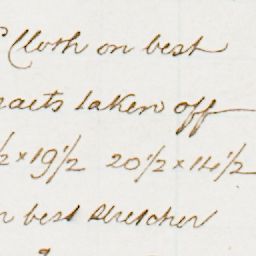 Cloth on best
taken off
1/2 × 19 1/2 20 1/2 × 14 1/2
best stretcher